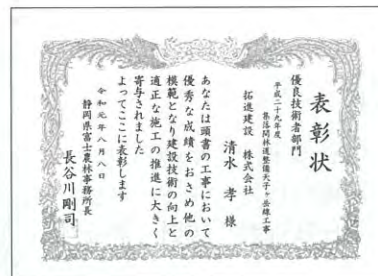 表彰状
優良技術者部門
平成二十九年度
集落間林道整備天子ヶ岳線工事
拓進建設 株式会社
清水 孝 様
あなたは頭書の工事において
優秀な成績をおさめ他の
模範となり建設技術の向上と
適正な施工の推進に大きく
寄与されました
よってここに表彰します
令和元年八月八日
静岡県富士農林事務所長
長谷川剛司